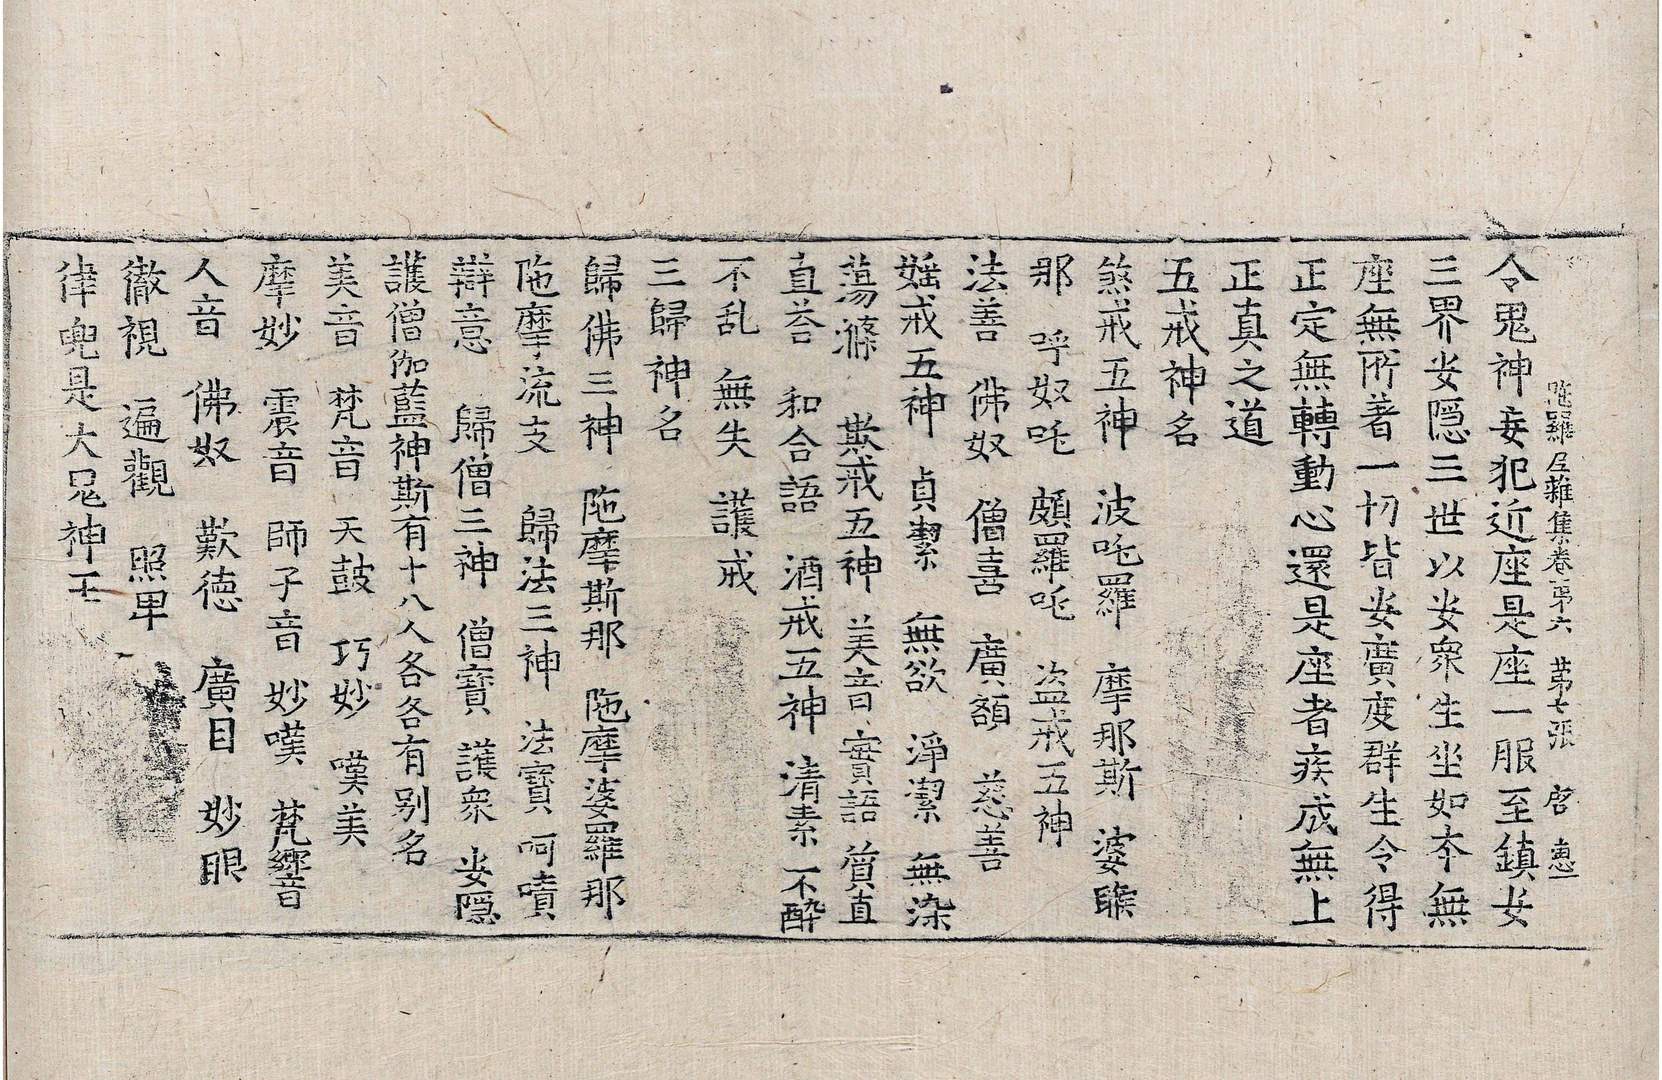 陁羅尼雜集卷苐六　苐七張　唐惠
令鬼神妄犯近座是座一服至鎮安
三界安隱三世以安衆生坐如夲無
座無所著一切皆安廣度群生令得
正定無轉動心還是座者疾成無上
正真之道
五戒神名
煞戒五神　波吒羅　摩那斯　婆睺
那　呼奴吒　頗羅吒　盜戒五神
法善　佛奴　僧喜　廣額　慈善
婬戒五神　貞潔　無欲　淨潔　無染
蕩滌　欺戒五神　美音　實語　質直
直荅　和合語　酒戒五神　清素　不醉
不乱　無失　護戒
三歸神名
歸佛三神　陁摩斯那　陁摩婆羅那
陁摩流支　歸法三神　法寶　呵嘖
辯意　歸僧三神　僧寶　護衆　安隱
護僧伽藍神斯有十八人各各有别名
美音　梵音　天鼓　巧妙　嘆美
摩妙　震音　師子音　妙嘆　梵響
人音　佛奴　歎德　廣目　妙眼
徹視　遍觀　照甲
律兜是大鬼神王